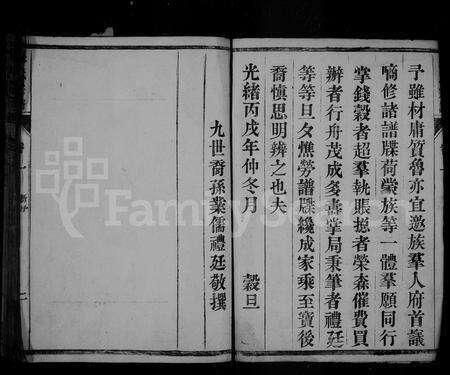 予雖材庸質魯亦宜邀族羣人府首議
嘀修諸譜牒荷蒙族等一體羣願同行
掌錢穀者超羣執賬摠者榮森催費買
辦者行舟茂成多壽掌局秉筆者禮廷
等等旦夕憔勞譜牒纔成家乘至寶後
裔慎思明辨之也夫
光緒丙戌年仲冬月 穀旦
九世裔孫業儒禮廷敬撰
FamilySearch